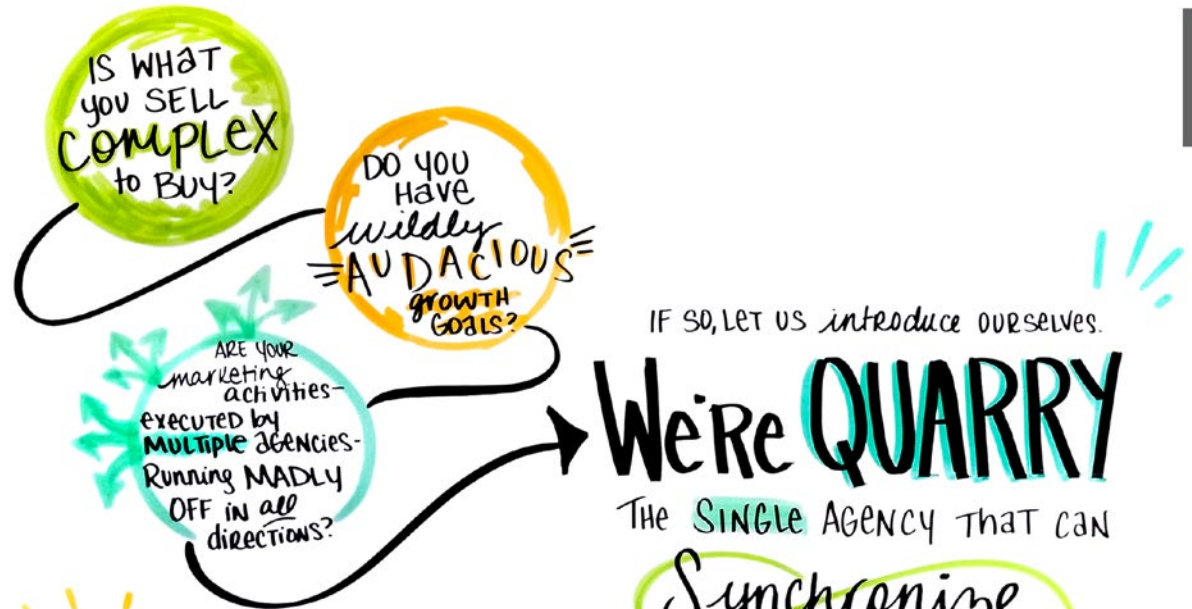 IS WHAT
YOU SELL
COMPLEX
to BUY?
DO YOU
HAVE
wildly
AUDACIOUS
GROWTH
GOALS?
ARE YOUR
marketing
activities-
EXECUTED by
MULTIPLE AGENCIES-
Running MADLY
OFF IN all
DIRECTIONS?
IF SO, LET US introduce OURSELVES.
We're QUARRY
THE SINGLE AGENCY THAT CAN
Synchronize